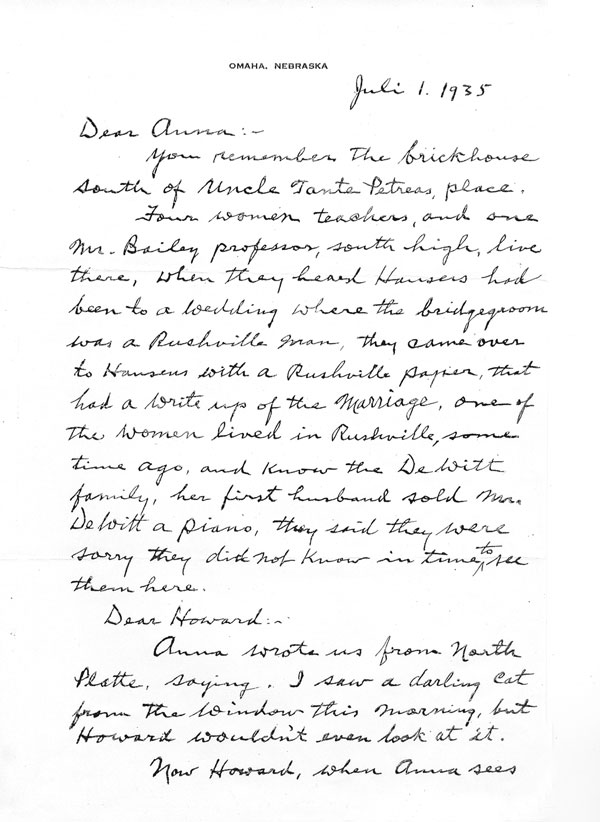 OMAHA, NEBRASKA
Juli 1. 1935
Dear Anna:-
You remember the brickhouse
south of Uncle Tante Petreas, place.
Four women teachers, and one
Mr. Bailey professor, south high, live
there, when they heard Hansens had
been to a wedding where the bridgegroom
was a Rushville man, they came over
to Hansens with a Rushville papier, that
had a write up of the Marriage, one of
the women lived in Rushville, some
time ago, and know the DeWitt
family, her first husband sold Mr.
DeWitt a piano, they said they were
sorry they did not know in time to see
them here.
Dear Howard:-
Anna wrote us from North
Platte, saying. I saw a darling cat
from the window this morning, but
Howard wouldn't even look at it.
Now Howard, when Anna sees